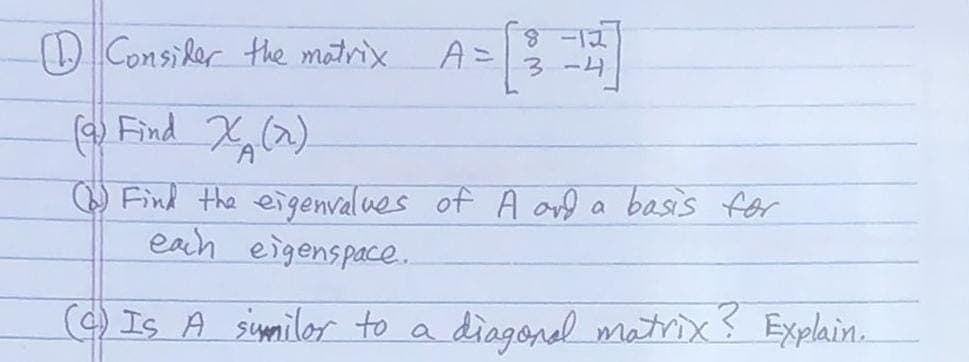 (1.) Consider the matrix A = [8 -12
3 -4]
(a) Find χ_A(λ)
(b) Find the eigenvalues of A and a basis for
each eigenspace.
(c) Is A similar to a diagonal matrix? Explain.